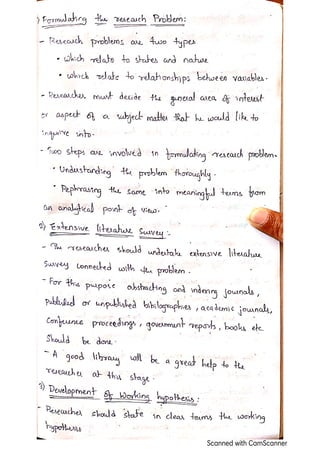 1) Formulating the research Problem:
- Research problems are two types
• which relate to states and nature
• which relate to relationships between variables.
- Researcher must decide the general area of interest
or aspect of a subject matter that he would like to
inquire into.
- Two steps are involved in formulating research problem.
• Understanding the problem thoroughly.
• Rephrasing the same into meaningful terms from
an analytical point of view.
2) Extensive literature Survey:
- The researcher should undertake extensive literature
Survey connected with the problem.
- For this purpose abstracting and indexing journals,
published or unpublished bibliographies, academic journals,
Conference proceedings, government reports, books etc.
Should be done.
- A good library will be a great help to the
researcher at this stage.
3) Development of Working hypothesis:
- Researcher should state in clear terms the working
hypothesis
Scanned with CamScanner